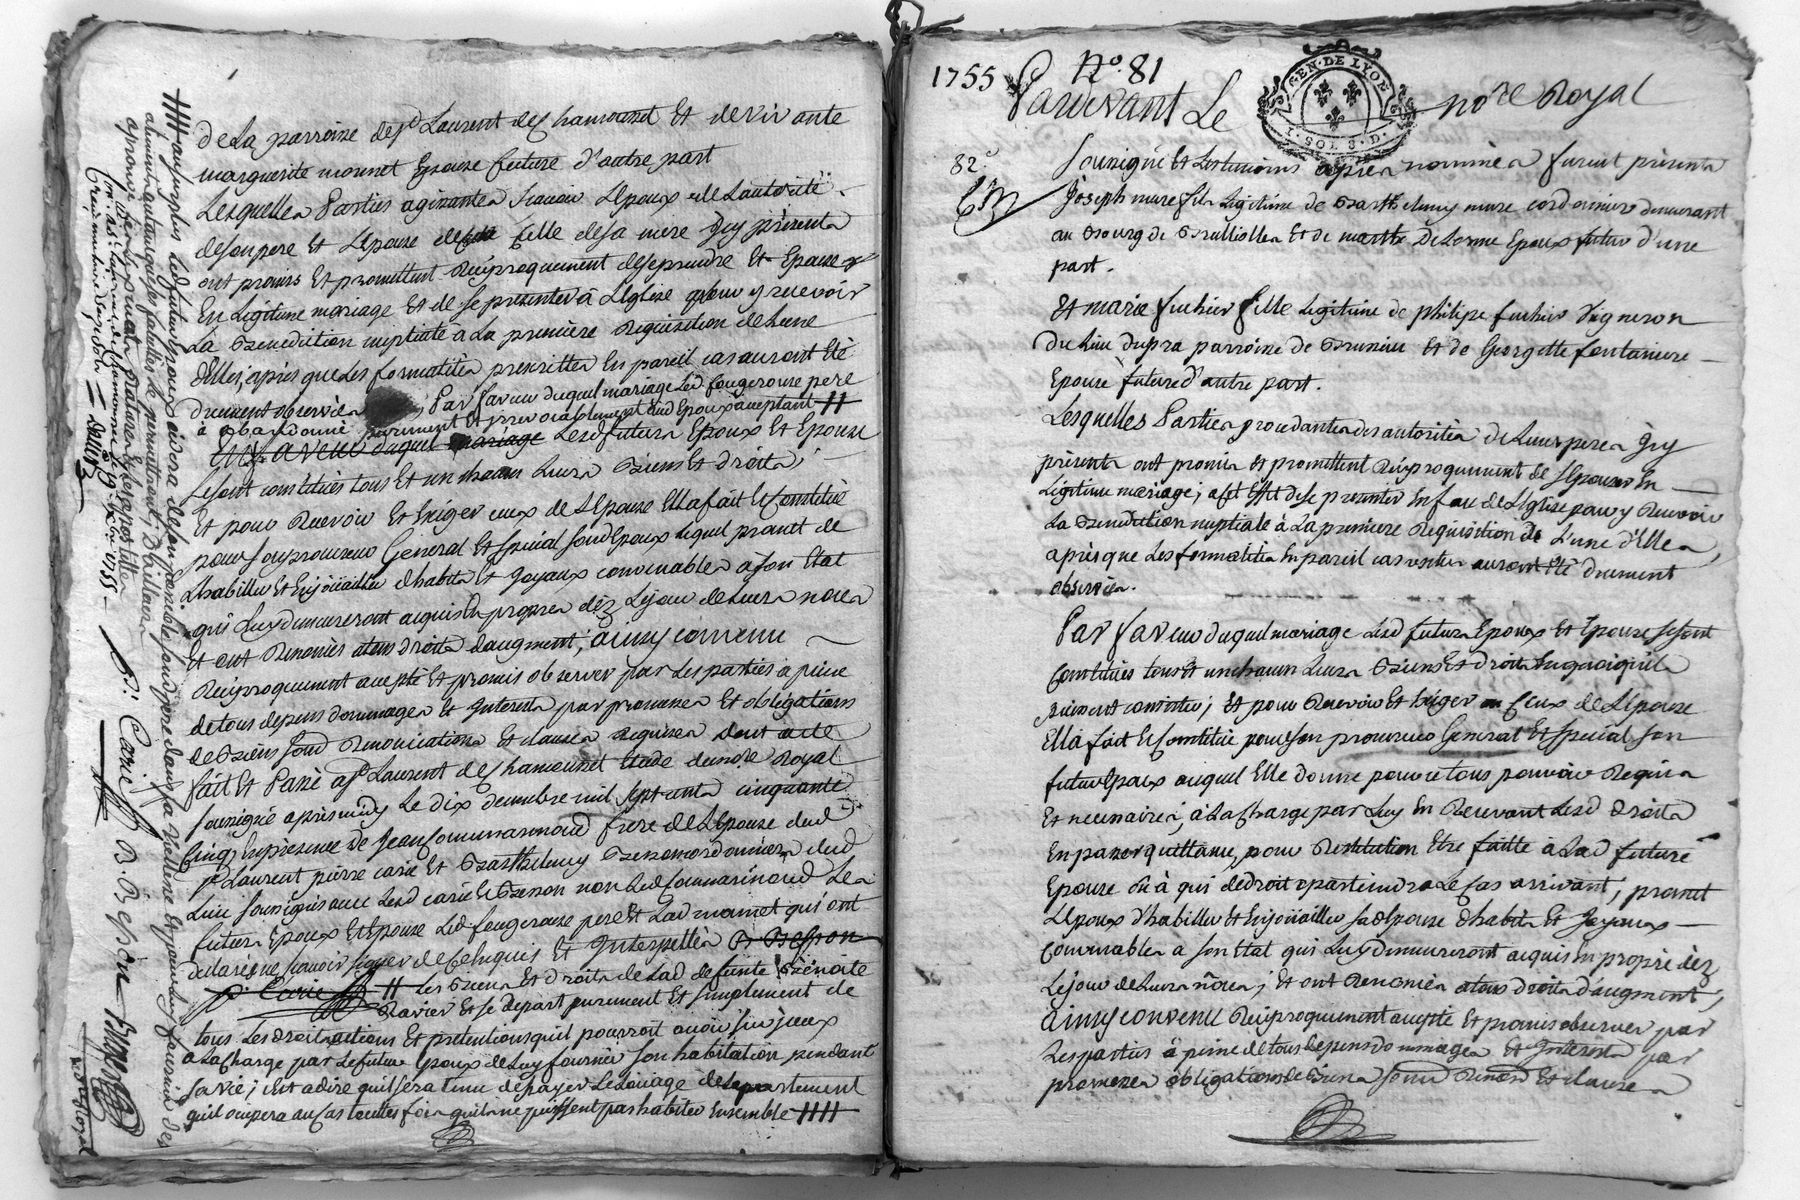 de La parroisse de st Laurent de Chamousset Et de vivante
marguerite mounet Epouse future d'autre part
Lesquelles Parties agissantes Scavoir L'Epoux de L'autorité
de son pere Et L'Epouse de celle de sa mere Icy présents
ont promis Et promettent Réciproquement de se prendre Et Epouser
En Légitime mariage Et de se presenter à L'Eglise pour y recevoir
La Bénédiction nuptiale à La première Réquisition de L'une
d'Elles, apres que Les formalités prescrittes En pareil cas auront Eté
duement observées Par faveur duquel mariage Led fougerouse pere
à abandonné purement Et irrevocablement aud Epoux acceptant #
En faveur duquel mariage Lesd futurs Epoux Et Epouse
se sont constitués tous Et un chacun Leurs Biens Et droits;
Et pour Recevoir Et Exiger ceux de L'Epouse Ella fait Et Constitué
pour son procureur Général Et spécial sond Epoux Lequel promet de
L'habiller Et Enjoüailler d'habits Et Joyaux convenables a son Etat
qui Luy demeureront acquis En propres déz Le jour de Leurs noces
Et ont Renoncés a tous droits d'augment, ainsy convenu
Réciproquement accepté Et promis observer par Les parties à peine
de tous depens dommages Et Interests par promesses Et obligations
de Biens sond Renonciations Et clauses Requises dont acte
fait Et Passé a st Laurent de Chamousset Etude du no.re Royal
soussigné apres midy Le dix decembre mil sept cents cinquante
Cinq, En presence de Jean frere de L'Epouse dud
st Laurent pierre carié Et Barthelemy Besson cordonniers dud
Lieu soussignés avec Lesd carié Et Besson non Led Les
futurs Epoux Et Epouse Led fougerouse pere Et Lad mounet qui ont
declarés ne scavoir signer de ce Enquis Et Interpellés B Besson
P. Carié # Les Biens Et droits de Lad defunte Bénoite
Ravier Et se depart purement Et simplement de
tous Les droits actions Et pretentions qu'il pourroit avoir sur iceux
a La charge par Le futur Epoux de Luy fournir son habitation pendant
sa vie; c'est a dire qu'il sera tenu de payer Le Loüage de Lapartement
qu'il occupera au cas toutes fois qu'ils ne puissent pas habiter Ensemble ##
## au surplus Led futur Epoux aidera de son possible sond pere dans sa viellesse Et pourra Luy fournir des
aliments autant que ses facultés Le permettront,
P: Carié B. Besson
1755 No. 81
GEN. DE LYON
1. SOL 8. D.
Pardevant Le no.re Royal
82e
soussigné Et Les temoins apres nommés furent présents
Joseph mure fils Légitime de Barthelemy mure cordonnier demeurant
au Bourg de Brulliolles Et de marthe De Lorme Epoux futur d'une
part.
Et marie fuchier fille Légitime de philipe fuchier Vigneron
du Lieu du pra parroisse de Brunieu Et de Georgette fontaniere
Epouse future d'autre part.
Lesquelles Parties procedantes des autorités de Leurs peres Icy
présents ont promis Et promettent Réciproquement de s'Epouser En
Légitime mariage; a cet Effet de se presenter En face de L'Eglise pour y Recevoir
La Bénédiction nuptiale à La premiere Réquisition de L'une d'Elles,
apres que Les formalités En pareil cas auront Eté duement
observées.
Par faveur duquel mariage Lesd futurs Epoux Et Epouse se sont
Constitués tous Et un chacun Leurs Biens Et droits En quoi qu'ils
puissent consister; Et pour Recevoir Et Exiger ceux de L'Epouse
Ella fait Et Constitué pour son procureur Général Et spécial son
futur Epoux auquel Elle donne pour ce tous pouvoirs Requis
Et necessaires, à La charge par Luy En Recevant Lesd Droits
En passer quittance, pour Restitution Etre faitte à Lad future
Epouse où à qui de droit apartiendra Le Cas arrivant; promet
L'Epoux d'habiller Et Enjoüailler sad Epouse d'habits Et Joyaux
Convenables a son Etat qui Luy demeureront acquis En propre déz
Le jour de Leurs nôces; Et ont Renoncés a tous droits d'augment;
ainsy convenu Réciproquement accepté Et promis observer par
Les parties à peine de tous depens dommages Et Interests par
promesses obligations de Biens sond Renond Et clauses